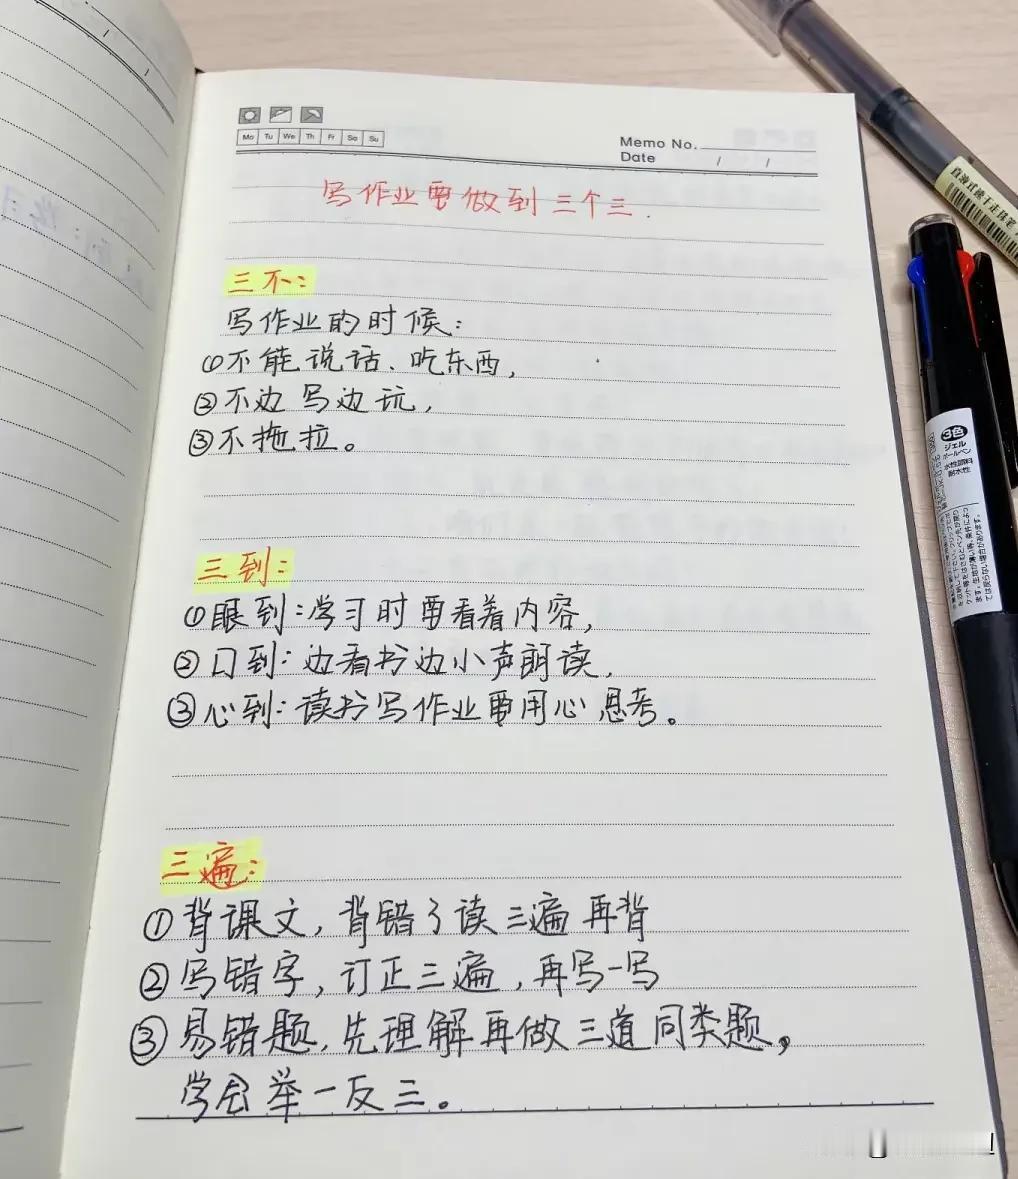 Mo Tu We Th Fr Sa Su
Memo No.
Date / /
写作业要做到三个三.
三不:
写作业的时候:
①不能说话、吃东西,
②不边写边玩,
③不拖拉。
三到:
①眼到:学习时要看着内容,
②口到:边看书边小声朗读,
③心到:读书写作业要用心思考。
三遍:
①背课文,背错了读三遍再背
②写错字,订正三遍,再写一写
③易错题,先理解再做三道同类题,
学会举一反三。
直液式走珠笔
3色
ジェル
ボールペン
水性顔料
耐水性